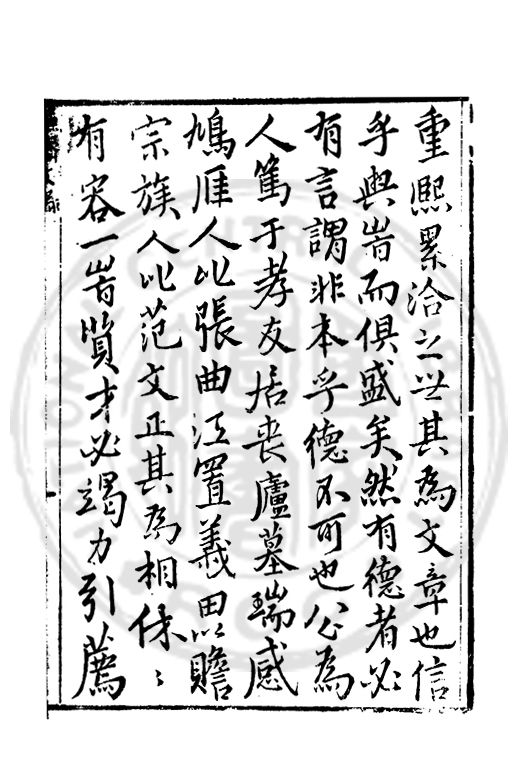 重熙累洽之世其為文章也信
乎與峕而俱盛矣然有德者必
有言謂非本乎德不可也公為
人篤于孝友居喪廬墓瑞感
鳩雁人比張曲江置義田以贍
宗族人比范文正其為相休〻
有容一峕賢才必竭力引薦